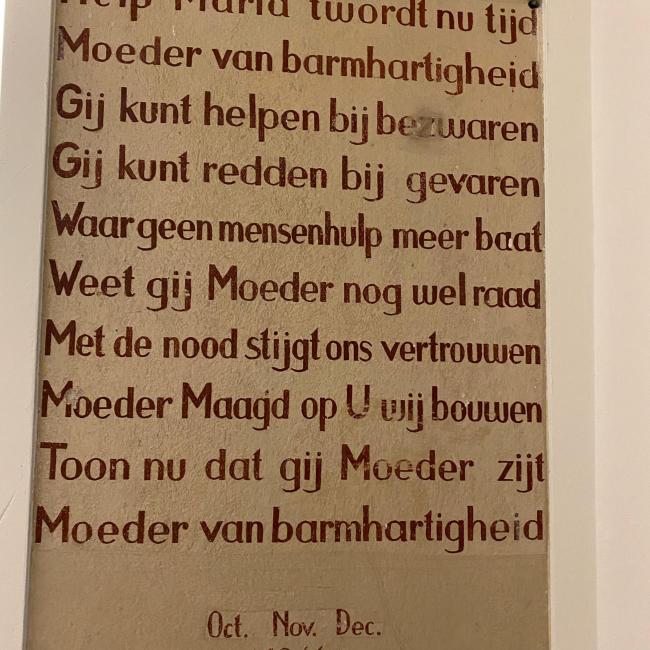 Help Maria twordt nu tijd
Moeder van barmhartigheid
Gij kunt helpen bij bezwaren
Gij kunt redden bij gevaren
Waar geen mensenhulp meer baat
Weet gij Moeder nog wel raad
Met de nood stijgt ons vertrouwen
Moeder Maagd op U wij bouwen
Toon nu dat gij Moeder zijt
Moeder van barmhartigheid
Oct. Nov. Dec.